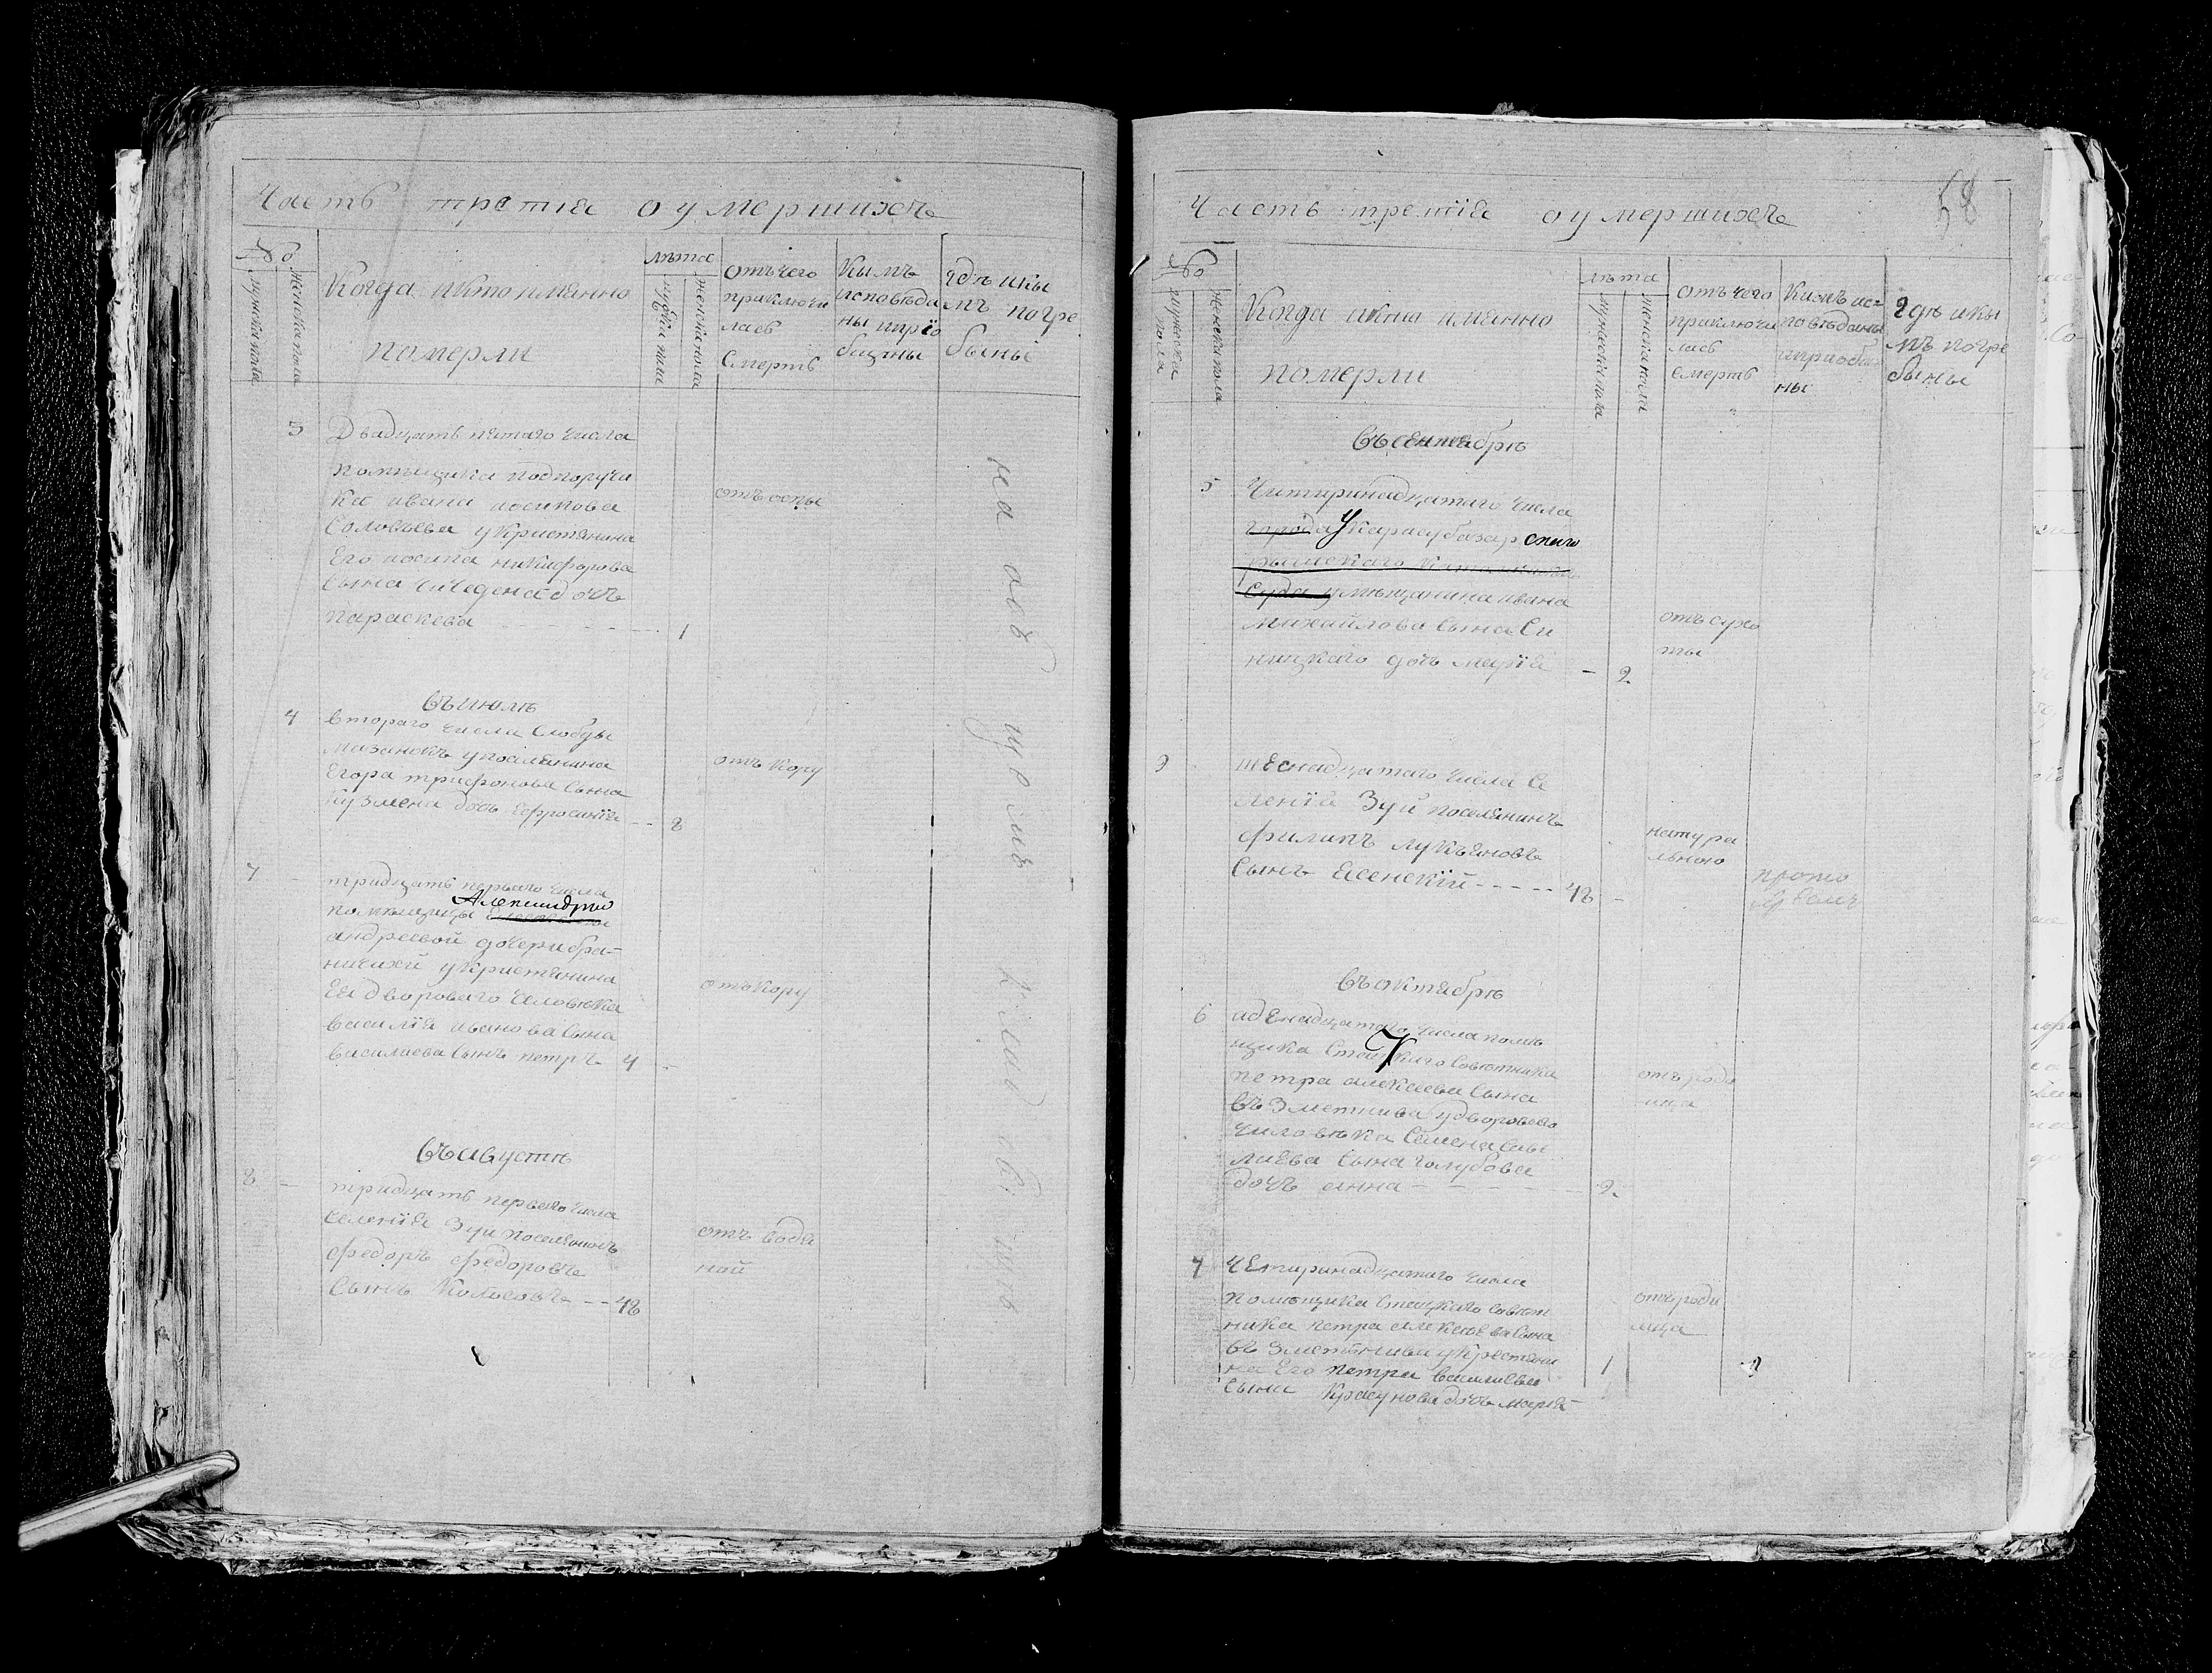 Часть третiя о умершихъ
№
мужска пола
женска пола
Когда икто имянно
померли
лѣта
мужска пола
женска пола
отъ чего
приключи
лась
Смерть
кымъ
исповѣда
ны ипрїо
бщены
гдѣ икы
мъ погре
бены
3
Двадцать пятаго числа
помѣщика подпоручи
ка ивана иосипова
Соловьева укристянина
Его иосипа никифорова
Сына дочь
параскева
1
отъ оспы
въ июлѣ
4
втораго числа Слобды
мазанокъ упоселянина
Егора трифонова Сына
кузмена дочь Ефросинїя
8
отъ кору
7
тридцать перваго числа
помѣщицы Александры
андреевой дочери бра-
ничихи укристянина
Ея двороваго человѣка
василїя иванова Сына
василиева Сынъ петръ
4
отъ кору
въ августѣ
8
тридцать перваго числа
Селенїя Зуи поселянинъ
федоръ федоровъ
Сынъ Колосовъ
48
отъ водя
ной
на общемъ кладбищѣ
58
Часть третїя о умершихъ
№
мужска
пола
женска пола
Когда икто имянно
померли
лѣта
мужска пола
женска пола
отъ чего
приключи
лась
Смерть
Кимъ ис=
повѣданы
иприобще
ны
гдѣ икы
мъ погре
бены
въ сентябрѣ
5
Читиринадцатаго числа
города Укарасубазарскаго
Суда умѣщанина ивана
михайлова Сына Си
ницкаго дочь марїя
2
отъ сухо
ты
9
шеснадцатаго числа Се
ленїя Зуи поселянинъ
филипъ лукъяновъ
Сынъ Ясенскїй
48
натура
льною
прото
въ октябрѣ
6
идЕнадцатаго числа помѣ
щика Статскаго Совѣтника
петра алексѣева Сына
въ Зметнива удвороваго
Чиловѣка Семена
Сына голубова
дочь анна
2
отъ роди
мца
7
чЕтиринадцатаго числа
помѣщика Статскаго совѣт
ника петра алексѣева Сына
въ Зметниви укрестяни
на Его петра василиева
Сына Красунова дочь марїя
1
отъ роди
мца